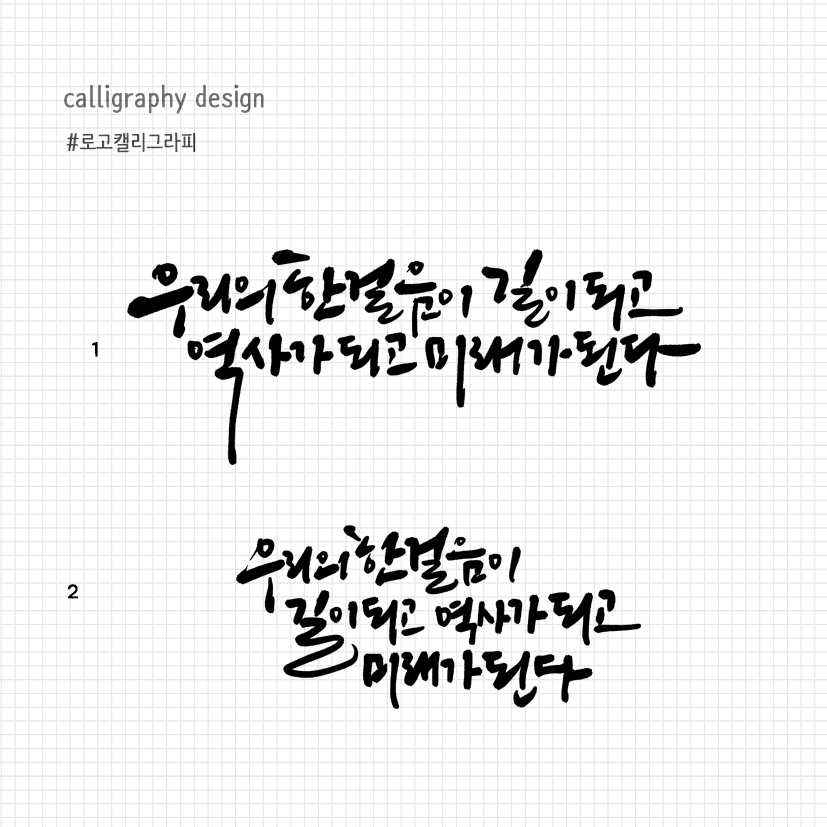 calligraphy design
#로고캘리그라피
1
우리의 한걸음이 길이되고
역사가 되고 미래가 된다
2
우리의 한걸음이
길이되고 역사가 되고
미래가 된다